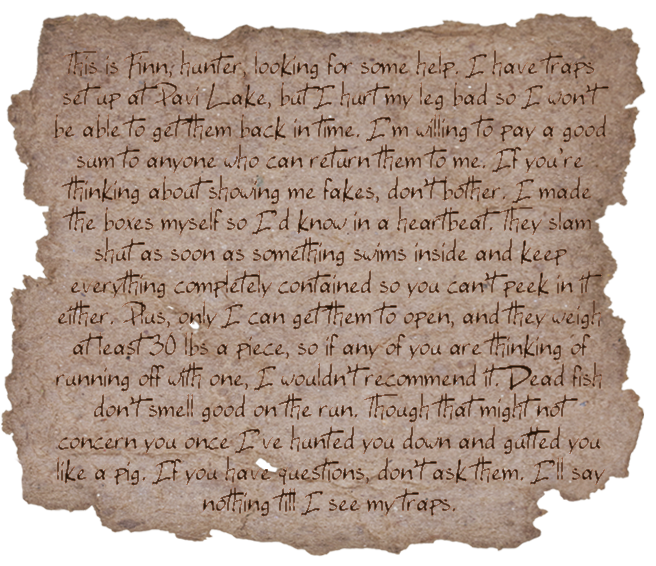 This is Finn, hunter, looking for some help. I have traps
set up at Pavi Lake, but I hurt my leg bad so I won't
be able to get them back in time. I'm willing to pay a good
sum to anyone who can return them to me. If you're
thinking about showing me fakes, don't bother. I made
the boxes myself so I'd know in a heartbeat. They slam
shut as soon as something swims inside and keep
everything completely contained so you can't peek in it
either. Plus, only I can get them to open, and they weigh
at least 30 lbs a piece, so if any of you are thinking of
running off with one, I wouldn't recommend it. Dead fish
don't smell good on the run. Though that might not
concern you once I've hunted you down and gutted you
like a pig. If you have questions, don't ask them. I'll say
nothing till I see my traps.